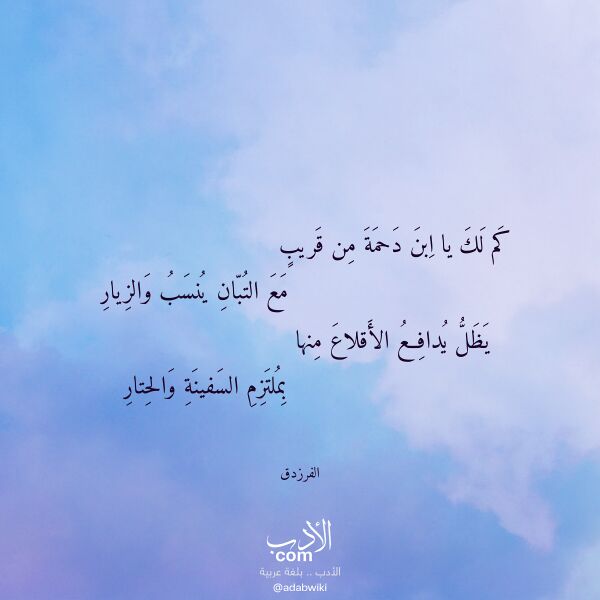 كَم لَكَ يا اِبنَ دَحمَةَ مِن قَريبٍ
مَعَ التُبّانِ يُنسَبُ وَالزِيارِ
يَظَلُّ يُدافِعُ الأَقلاعَ مِنها
بِمُلتَزِمِ السَفينَةِ وَالحِتارِ
الفرزدق
الأدب
com
الأدب .. بلغة عربية
@adabwiki